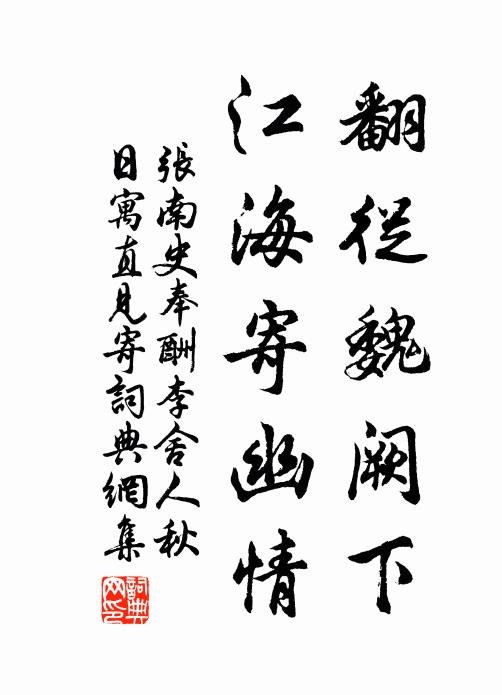 翻從魏阙下
江海寄幽情
張南史奉酬李舍人秋
日寓直見寄詞典網集
詞典网印